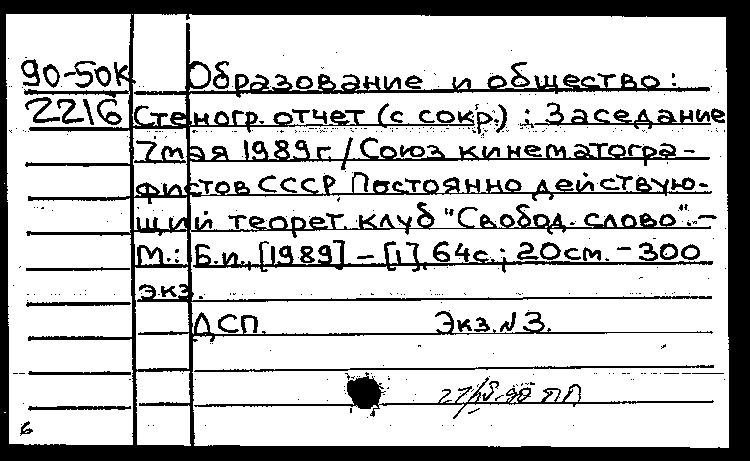 90-50К Образование и общество:
2216 Стеногр. отчет (с сокр.) : Заседание
7 мая 1989 г. / Союз кинематогра-
фистов СССР, Постоянно действую-
щий теорет. клуб "Свобод. слово". -
М.: Б.и., [1989] - [1], 64с.; 20см. - 300
экз.
ДСП. Экз. N 3.
90 ПП
6